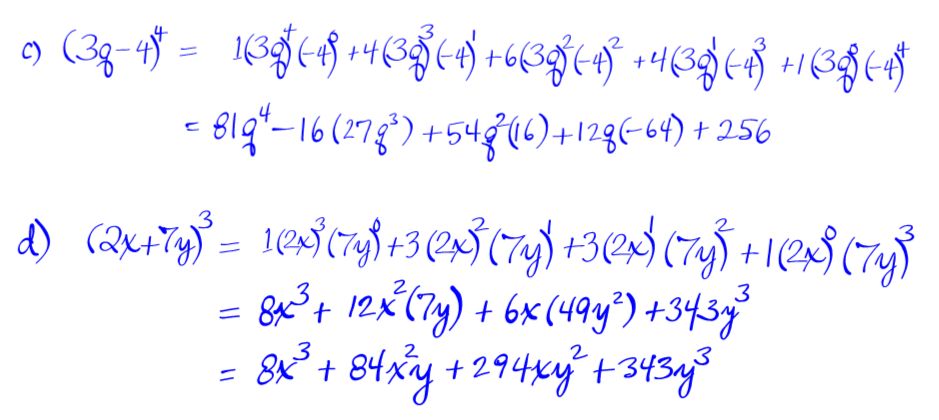 c) (3q-4)⁴ = 1(3q)⁴(-4)⁰+4(3q)³(-4)¹+6(3q)²(-4)²+4(3q)¹(-4)³+1(3q)⁰(-4)⁴
= 81q⁴-16(27q³)+54q²(16)+12q(-64)+256
d) (2x+7y)³ = 1(2x)³(7y)⁰+3(2x)²(7y)¹+3(2x)¹(7y)²+1(2x)⁰(7y)³
= 8x³+12x²(7y)+6x(49y²)+343y³
= 8x³+84x²y+294xy²+343y³